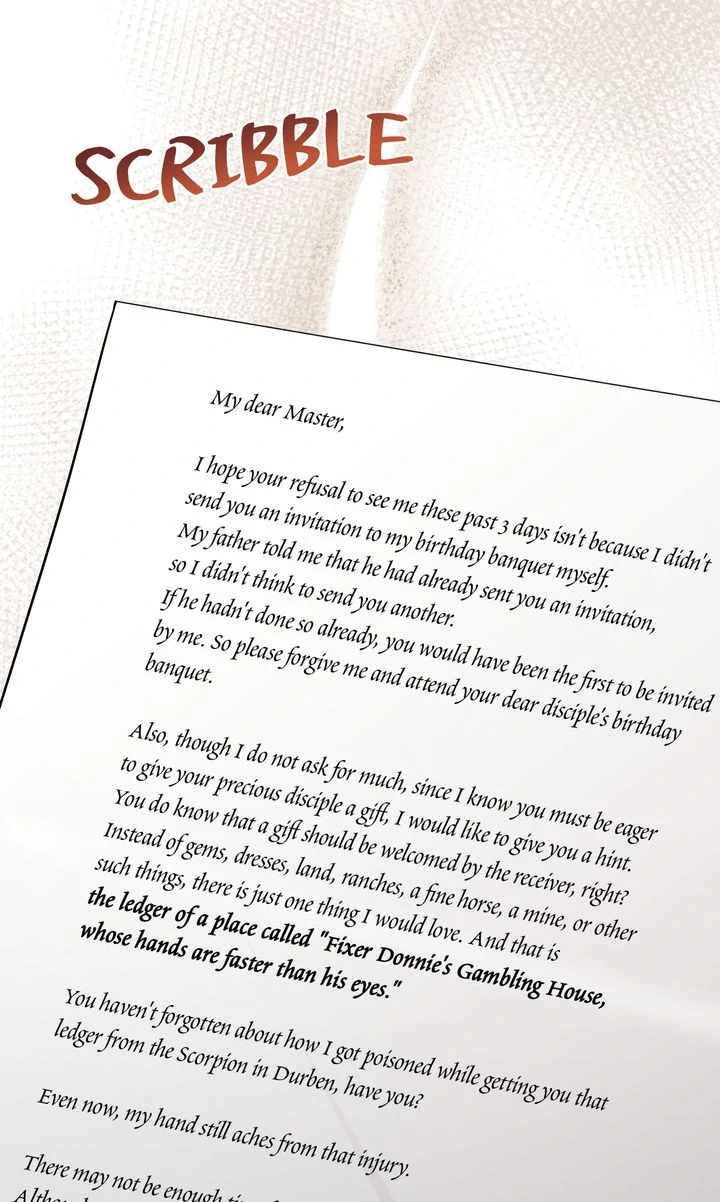 SCRIBBLE
My dear Master,
I hope your refusal to see me these past 3 days isn't because I didn't
send you an invitation to my birthday banquet myself.
My father told me that he had already sent you an invitation,
so I didn't think to send you another.
If he hadn't done so already, you would have been the first to be invited
by me. So please forgive me and attend your dear disciple's birthday
banquet.
Also, though I do not ask for much, since I know you must be eager
to give your precious disciple a gift, I would like to give you a hint.
You do know that a gift should be welcomed by the receiver, right?
Instead of gems, dresses, land, ranches, a fine horse, a mine, or other
such things, there is just one thing I would love. And that is
the ledger of a place called "Fixer Donnie's Gambling House,
whose hands are faster than his eyes."
You haven't forgotten about how I got poisoned while getting you that
ledger from the Scorpion in Durben, have you?
Even now, my hand still aches from that injury.
There may not be enough